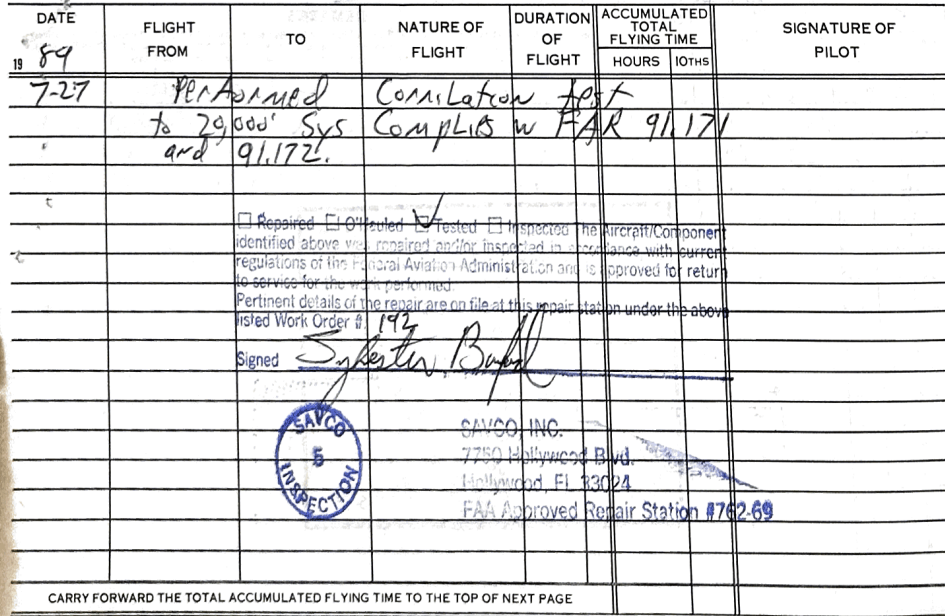 DATE FLIGHT FROM TO NATURE OF FLIGHT DURATION OF FLIGHT ACCUMULATED TOTAL FLYING TIME SIGNATURE OF PILOT
19 89 HOURS 10THS
7-27 Performed Correlation test
to 20,000' Sys Complies w FAR 91.171
and 91.172.
Repaired O'Hauled Tested Inspected The Aircraft/Component
identified above was repaired and/or inspected in accordance with current
regulations of the Federal Aviation Administration and is approved for return
to service for the work performed.
Pertinent details of the repair are on file at this repair station under the above
listed Work Order #. 192
Signed Sylvester
SAVCO
5
INSPECTION
SAVCO, INC.
7750 Hollywood Blvd.
Hollywood, FL 33024
FAA Approved Repair Station #762-69
CARRY FORWARD THE TOTAL ACCUMULATED FLYING TIME TO THE TOP OF NEXT PAGE